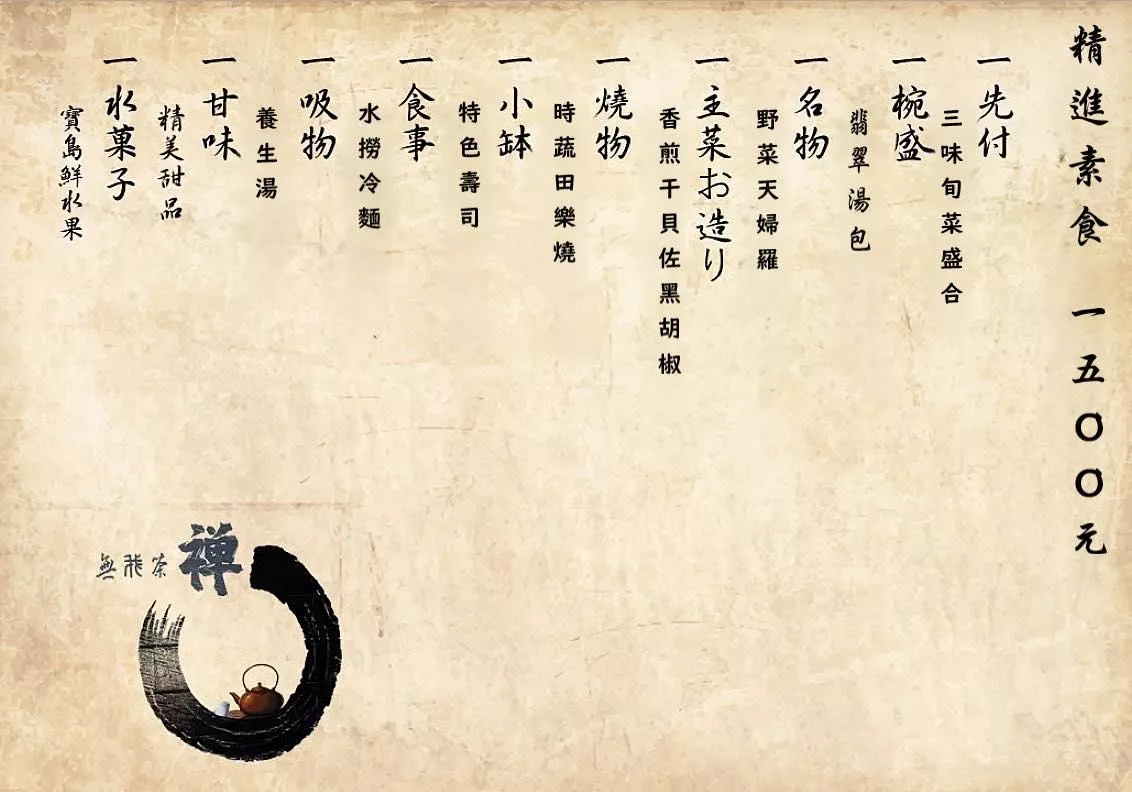 精進素食 一五〇〇元
一先付
三味旬菜盛合
一椀盛
翡翠湯包
一名物
野菜天婦羅
一主菜お造り
香煎干貝佐黑胡椒
一燒物
時蔬田樂燒
一小缽
特色壽司
一食事
水撈冷麵
一吸物
養生湯
一甘味
精美甜品
一水菓子
寶島鮮水果
禅
茶非無